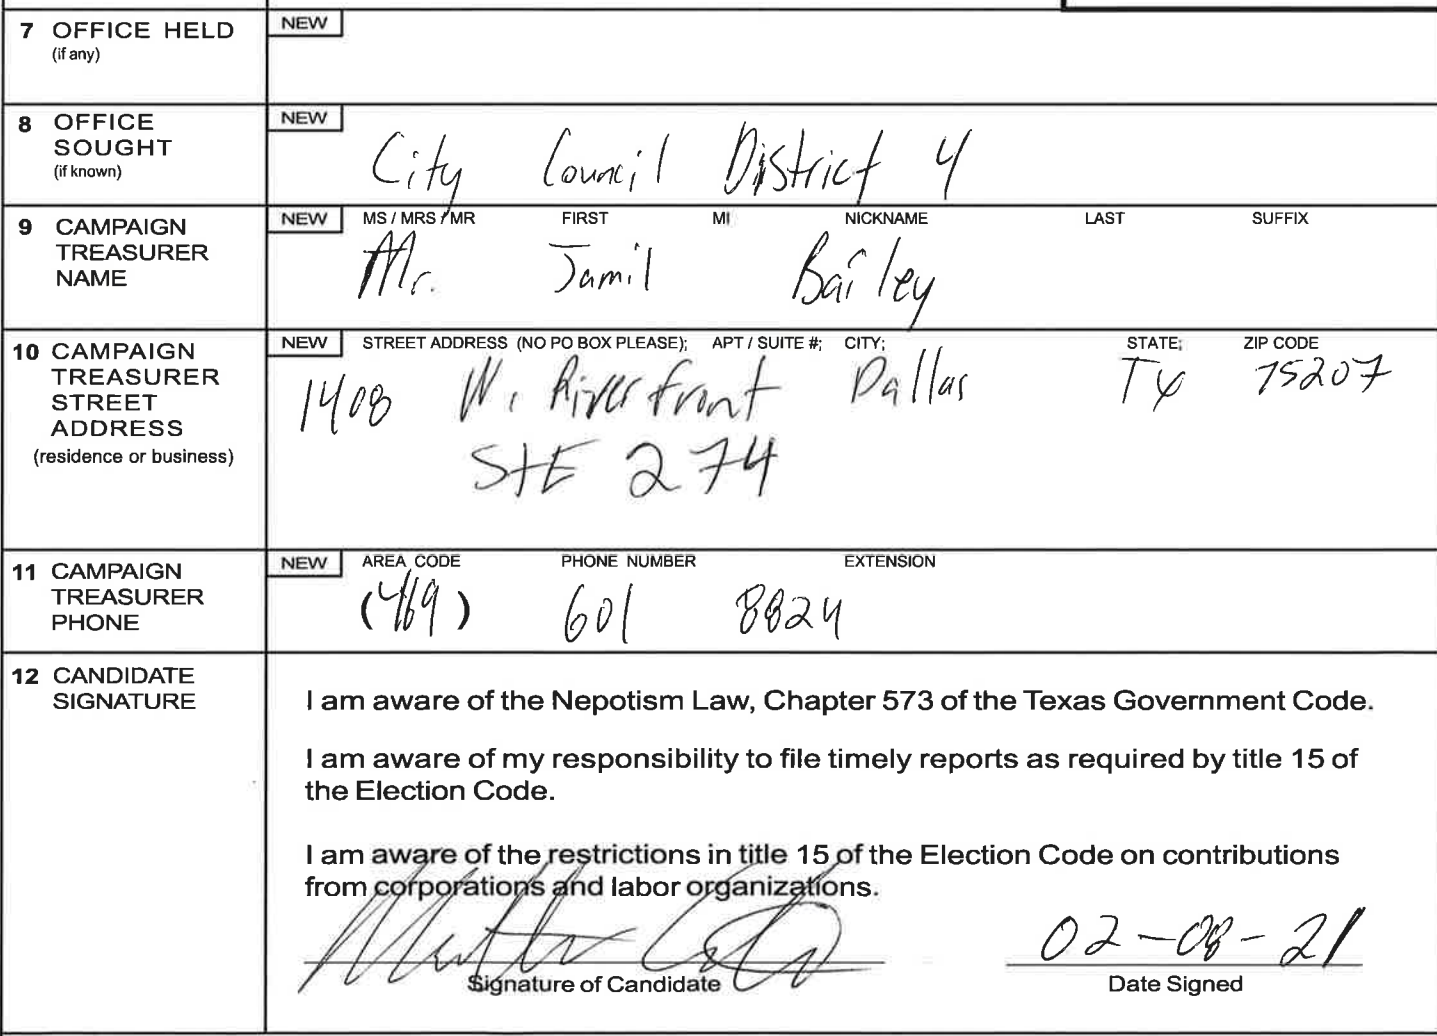 7 OFFICE HELD
(if any)
NEW
8 OFFICE SOUGHT
(if known)
NEW
City Council District 4
9 CAMPAIGN TREASURER NAME
NEW MS / MRS / MR FIRST MI NICKNAME LAST SUFFIX
Mr. Jamil Bailey
10 CAMPAIGN TREASURER STREET ADDRESS
(residence or business)
NEW STREET ADDRESS (NO PO BOX PLEASE); APT / SUITE #; CITY; STATE; ZIP CODE
1408 N. Riverfront Dallas TX 75207
StE 274
11 CAMPAIGN TREASURER PHONE
NEW AREA CODE PHONE NUMBER EXTENSION
(469) 601 8824
12 CANDIDATE SIGNATURE
I am aware of the Nepotism Law, Chapter 573 of the Texas Government Code.
I am aware of my responsibility to file timely reports as required by title 15 of
the Election Code.
I am aware of the restrictions in title 15 of the Election Code on contributions
from corporations and labor organizations.
02-08-21
Signature of Candidate Date Signed